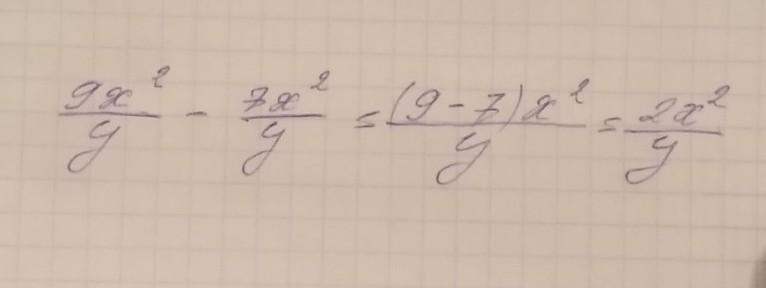 9x²/y - 7x²/y = (9-7)x²/y = 2x²/y